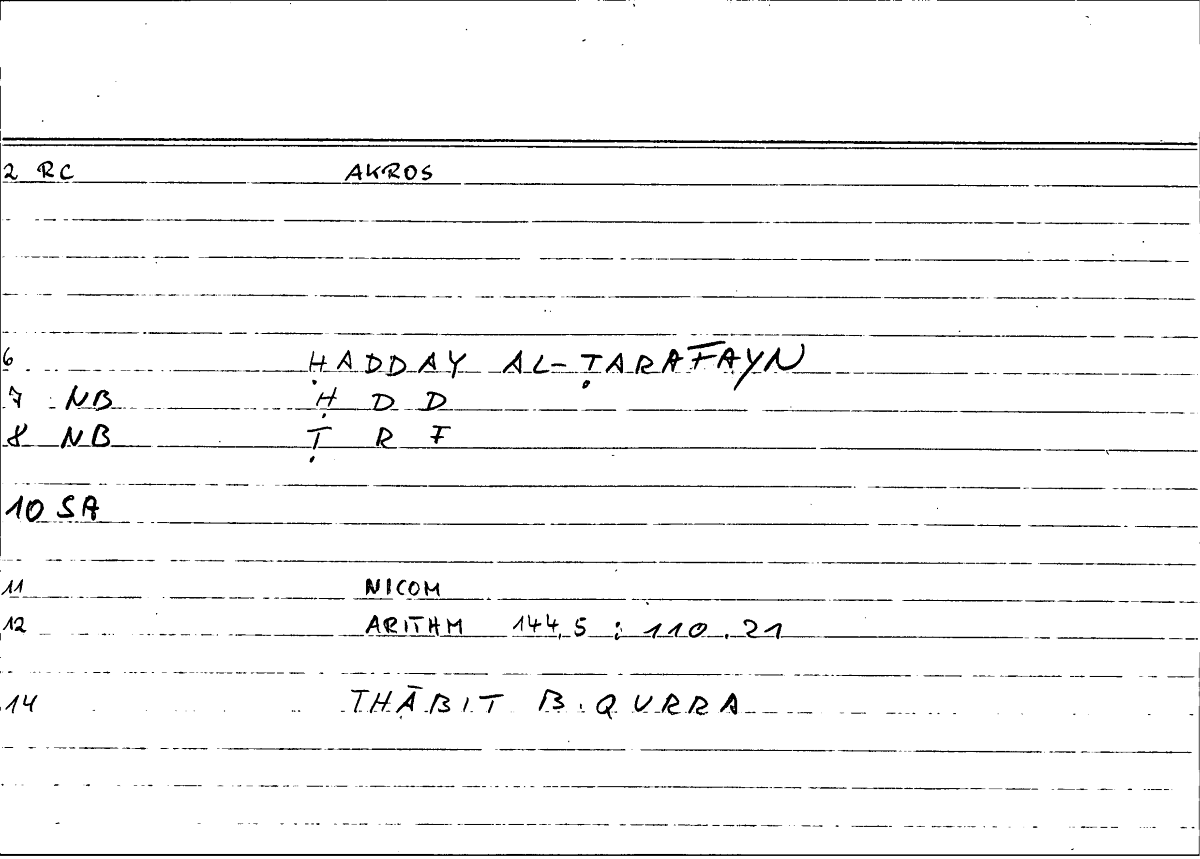 2 RC AKROS
6 ḤADDAY AL-ṬARAFAYN
7 NB Ḥ D D
8 NB Ṭ R F
10 SA
11 NICOM
12 ARITHM 144,5 : 110.21
14 THĀBIT B. QURRA